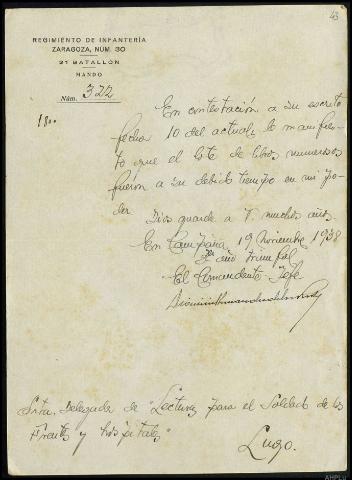 43
REGIMIENTO DE INFANTERÍA
ZARAGOZA, NÚM. 30
21 BATALLÓN
MANDO
Núm. 322
En contestación a su escrito
fecha 10 del actual, le manifies-
to que el lote de libros
fueron a su debido tiempo en mi po-
der
Dios guarde a V. muchos años
En Campaña 19 Noviembre 1938
III año Triunfal
El Comandante Jefe
Srta. Delegada de "Lecturas para el Soldado de los
Frentes y hospitales"
Lugo.
AHPLu